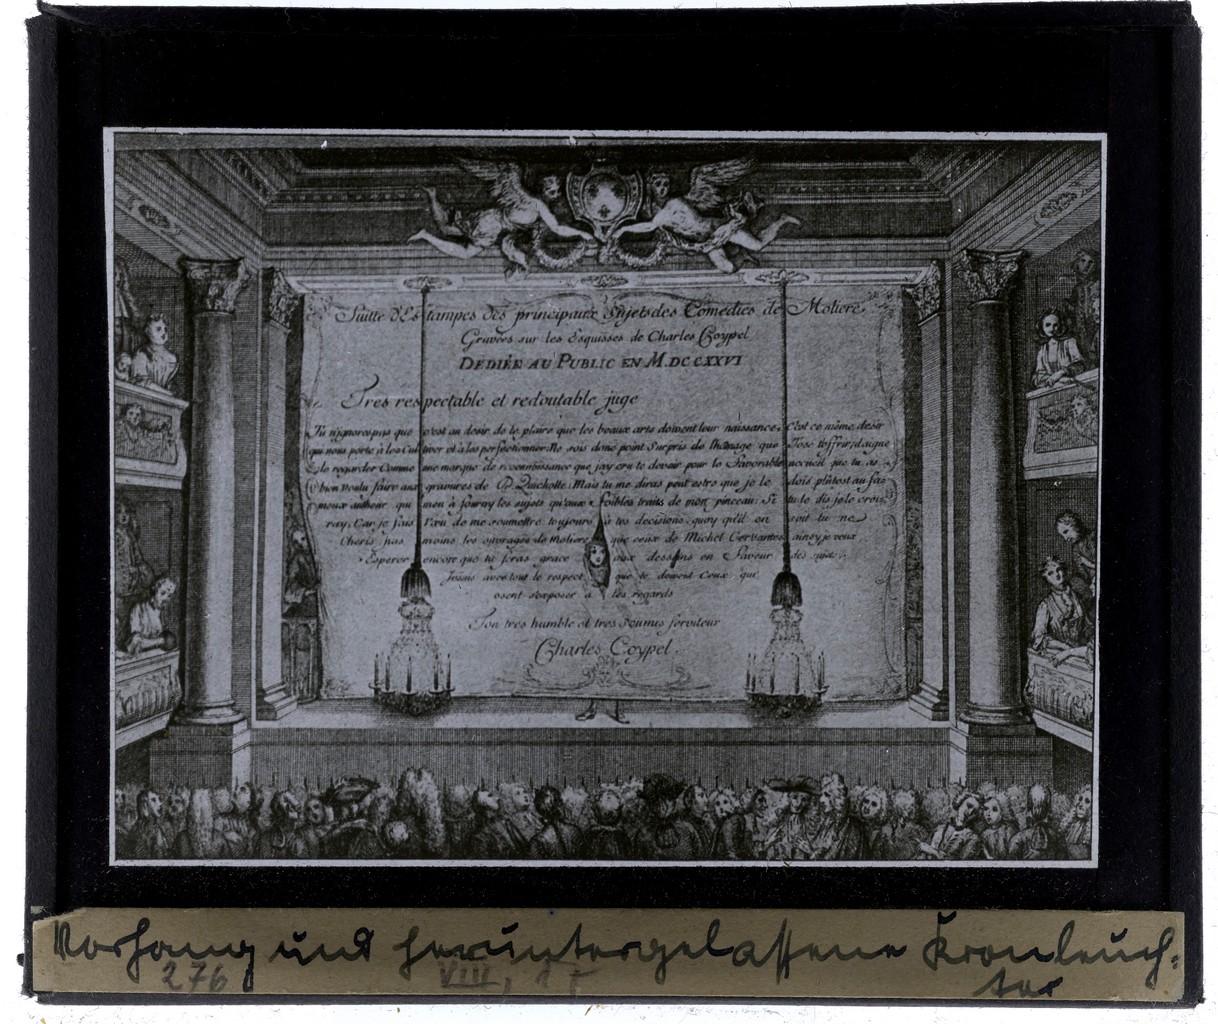 Suitte d'Estampes des principaux Sujets des Comedies de Moliere
Gravées sur les Esquisses de Charles Coypel
DEDIÉE AU PUBLIC EN M.DCCXXVI
Tres respectable et redoutable juge
Tu n'ignores pas que c'est au desir de te plaire que les beaux arts doivent leur naissance. C'est ce même desir
qui nous porte à les Cultiver et à les perfectionner. Ne sois donc point Surpris de l'homage que J'ose t'offrir, daigne
le regarder Comme une marque de reconnoissance que j'ay cru te devoir pour le favorable accueil que tu as
bien voulu faire aux gravures de D. Quichotte. Mais tu me diras peut estre que je le dois plûtost au fa=
meux autheur qui m'en à fourny les sujets qu'aux foibles traits de mon pinceau. Si tu le dis je le croi=
ray. Car je fais Vœu de me soumettre toujours à tes decisions, quoy qu'il en soit tu ne
Cheris pas moins les ouvrages de Moliere que ceux de Michel Cervantes ainsy je veux
Esperer encore que tu feras grace aux desseins en Faveur des sujets.
Jesuis avec tout le respect que te doivent Ceux qui
osent s'exposer à tes regards
Ton tres humble et tres soumis serviteur
Charles Coypel.
Vorhang und heruntergelassene Kronleuch=
ter
276 VIII, 17